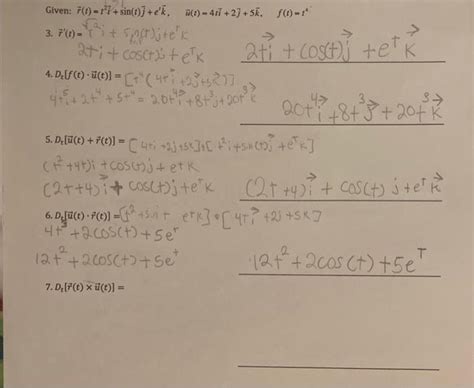 Given: r⃗(t) = t²i⃗ + sin(t)j⃗ + eᵗk⃗, u⃗(t) = 4ti⃗ + 2j⃗ + 5k⃗, f(t) = t⁴
3. r⃗'(t) = t²i + sin(t)j + eᵗk
2ti + cos(t)j + eᵗk
2ti⃗ + cos(t)j⃗ + eᵗk⃗
4. Dₜ[f(t) · u⃗(t)] = [t⁴(4ti⃗ + 2j⃗ + 5k⃗)]
4t⁵i + 2t⁴ + 5t⁴ = 20t⁴i⃗ + 8t³j + 20t³k⃗
20t⁴i⃗ + 8t³j⃗ + 20t³k⃗
5. Dₜ[u⃗(t) + r⃗(t)] = [4ti + 2j + 5k] + [t²i + sin(t)j⃗ + eᵗk]
(t² + 4t)i + cos(t)j + eᵗk
(2t + 4)i⃗ + cos(t)j + eᵗk
(2t + 4)i⃗ + cos(t)j + eᵗk⃗
6. Dₜ[u⃗(t) · r⃗(t)] = [t² + sin t eᵗk] • [4ti⃗ + 2j + 5k]
4t³ + 2cos(t) + 5eᵗ
12t² + 2cos(t) + 5eᵗ
12t² + 2cos(t) + 5eᵗ
7. Dₜ[r⃗(t) × u⃗(t)] =